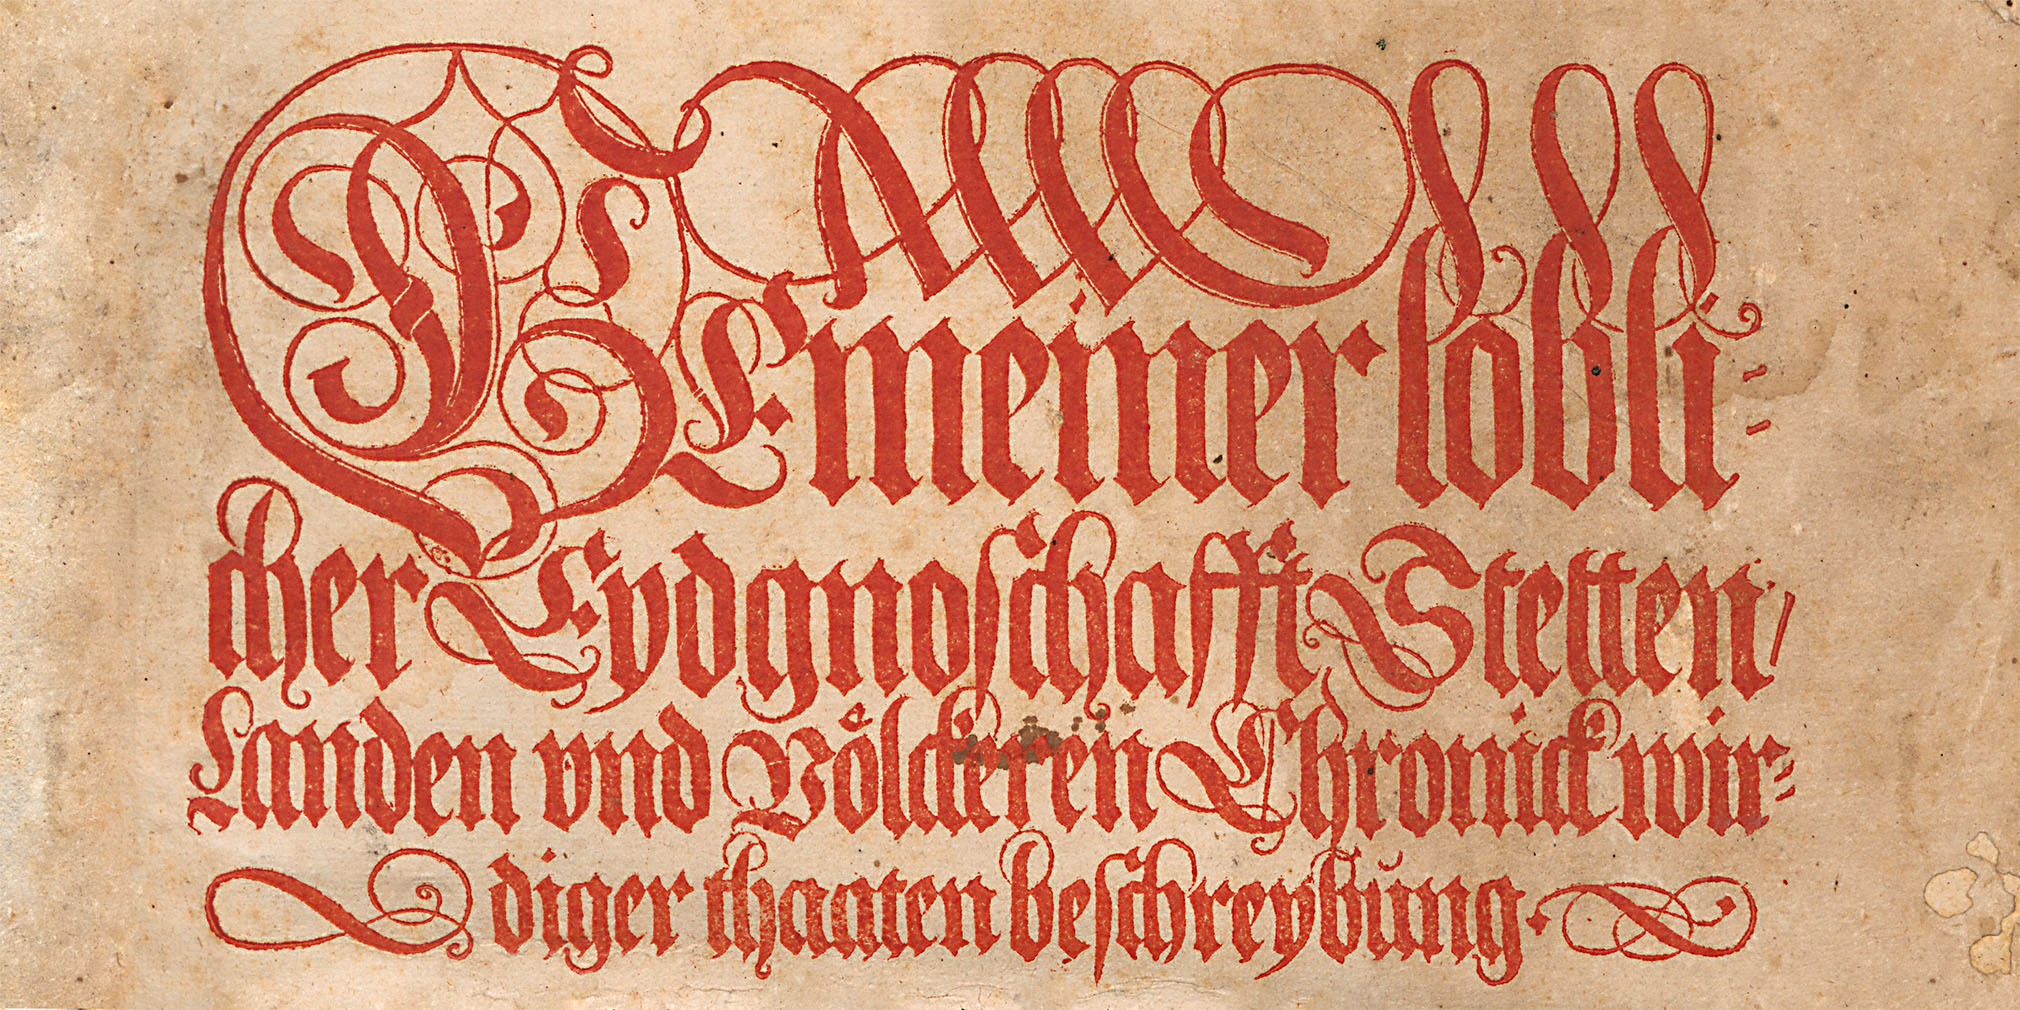 GEmeiner lobli-
cher Eydgnoschafft Stetten/
Landen vnd Völckeren Chronick wir-
diger thaaten beschreybung.